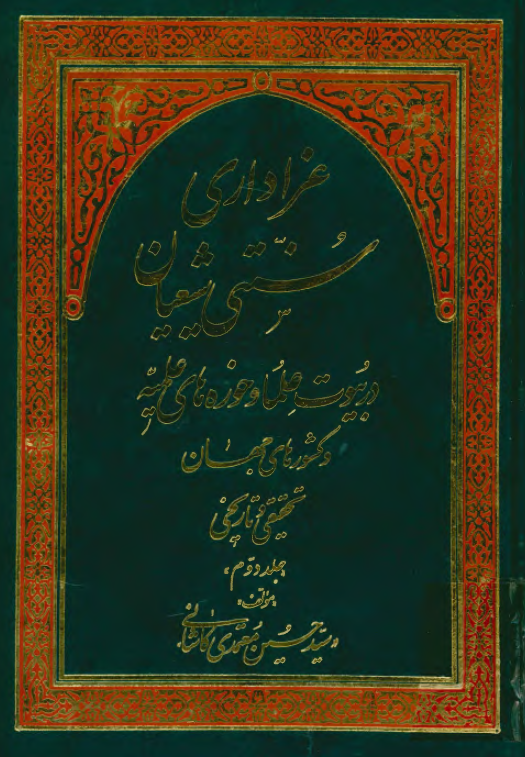 عزاداری
سنّتی شیعیان
در بیوت علما و حوزه‌های علمیّه
و کشورهای جهان
تحقیقی و تاریخی
جلد دوّم
مؤلف:
سیّد حسین معتمدی کاشانی